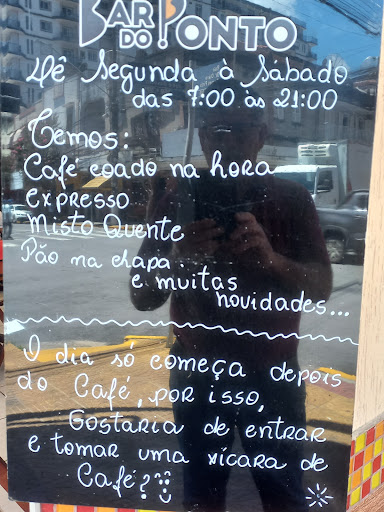 BAR DO PONTO
Dê Segunda à Sábado
das 7:00 às 21:00
Temos:
Café coado na hora
expresso
Misto Quente
Pão na chapa
e muitas
novidades...
O dia só começa depois
do Café, por isso,
Gostaria de entrar
e tomar uma xícara de
Café?